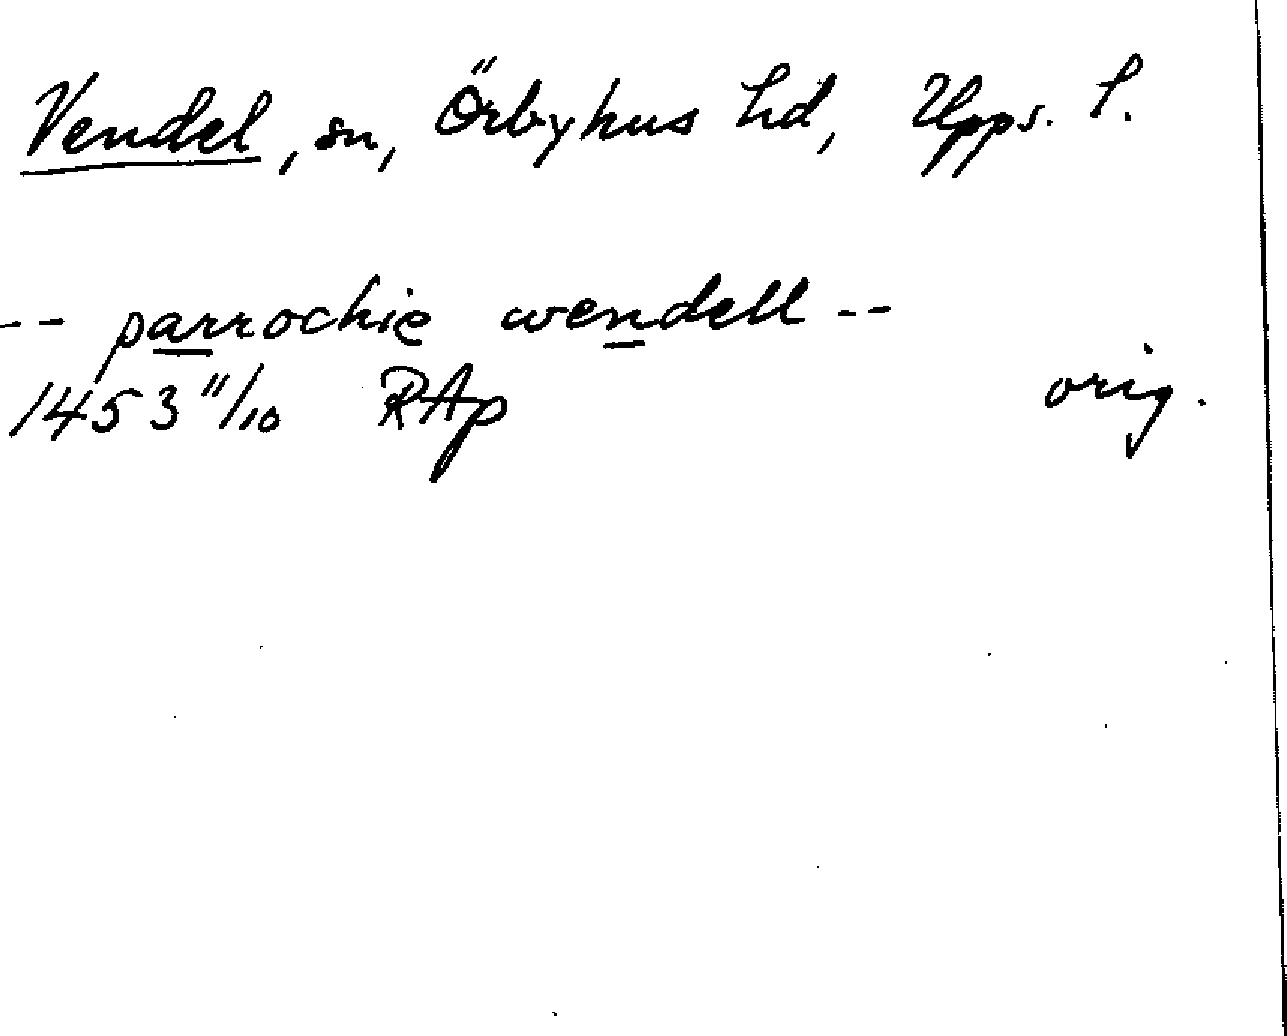 Vendel, sn, Örbyhus hd, Upps. l.
-- parrochie wendell --
1453 11/10 RAp orig.